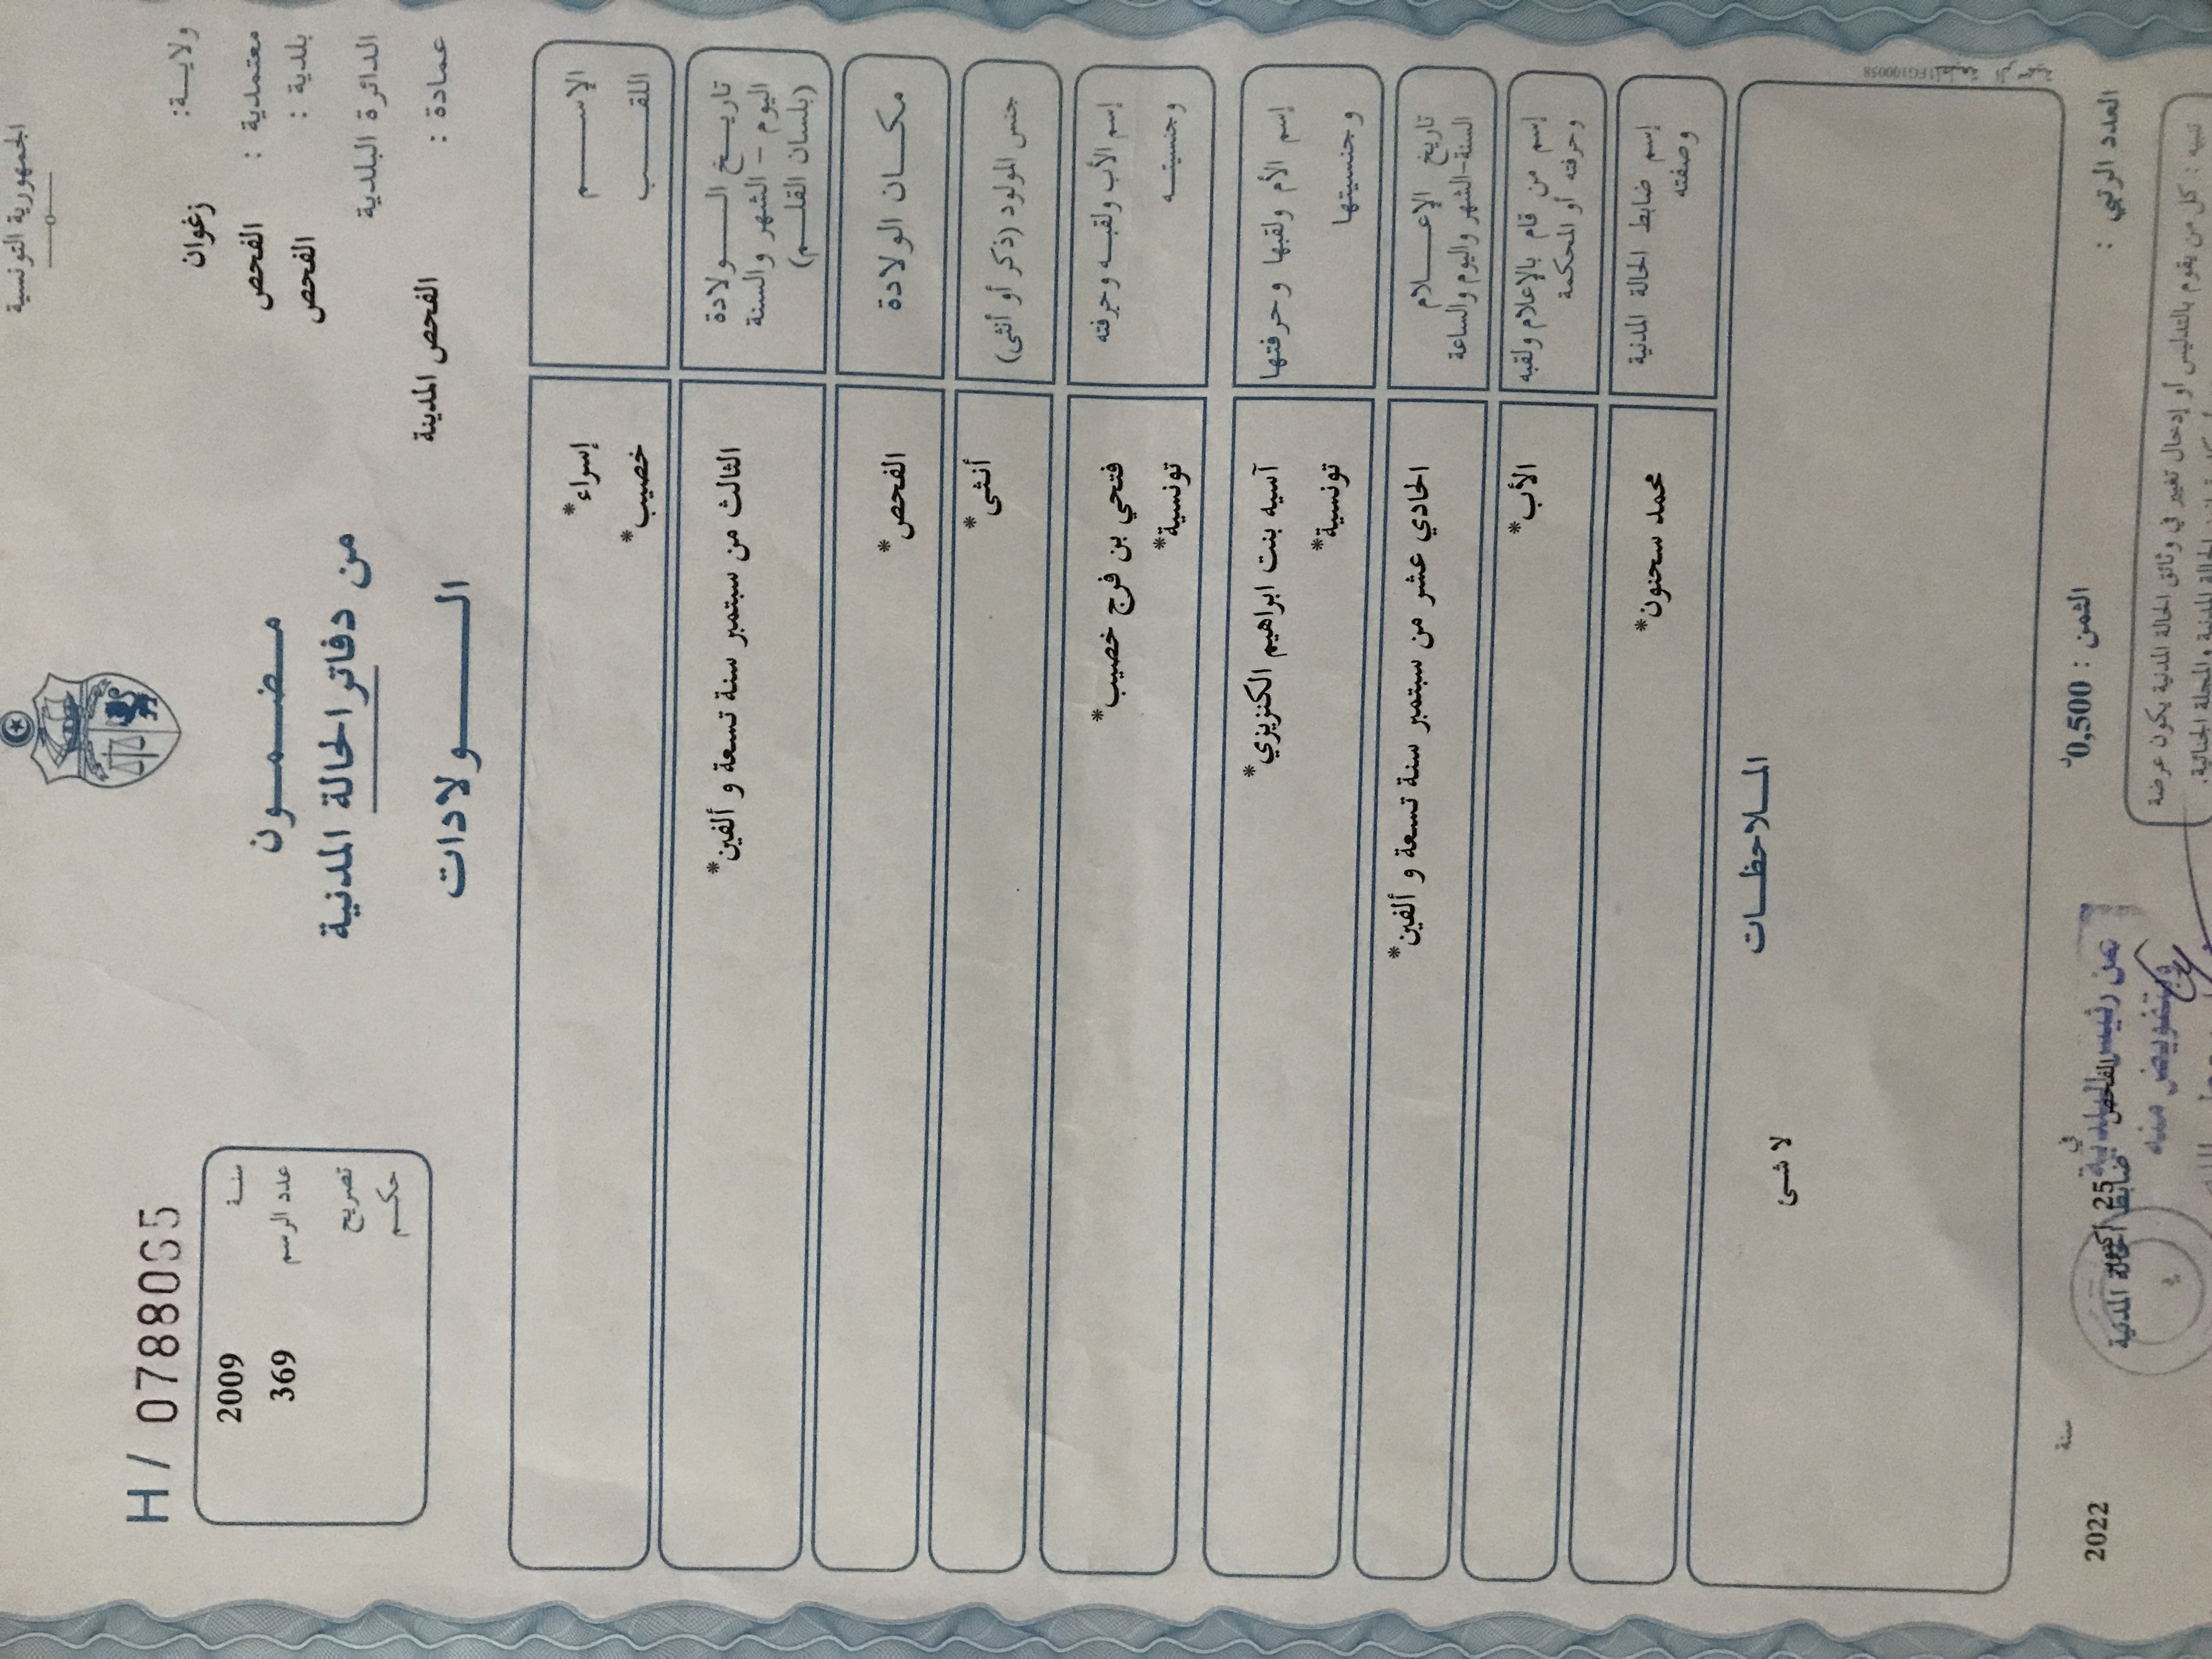 الجمهورية التونسية
H / 0788065
ولاية: زغوان
معتمدية : الفحص
بلدية : الفحص
الدائرة البلدية
عمادة : الفحص المدينة
مضمون
من دفاتر الحالة المدنية
الولادات
سنة 2009
عدد الرسم 369
تصريح
حكم
الإسم إسراء*
اللقب خصيب*
تاريخ الولادة
اليوم – الشهر والسنة
(بلسان القلم)
الثالث من سبتمبر سنة تسعة و ألفين*
مكان الولادة الفحص*
جنس المولود (ذكر أو أنثى) أنثى*
إسم الأب ولقبه وحرفته فتحي بن فرج خصيب*
وجنسيته تونسية*
إسم الأم ولقبها وحرفتها آسيه بنت ابراهيم الكنزيزي*
وجنسيتها تونسية*
تاريخ الإعلام
السنة-الشهر واليوم والساعة
الحادي عشر من سبتمبر سنة تسعة و ألفين*
إسم من قام بالإعلام ولقبه
وحرفته أو المحكمة
الأب*
إسم ضابط الحالة المدنية
وصفته
محمد سحنون*
الملاحظات
لا شئ
العدد الرتبي :
الثمن : 0,500د
في
الفحص
25 أكتوبر
سنة 2022
ضابط الحالة المدنية
عن رئيس البلدية
بتفويض منه
تنبيه : كل من يقوم بالتدليس أو إدخال تغيير في وثائق الحالة المدنية يكون عرضة
الحالة المدنية والمجلة الجنائية.